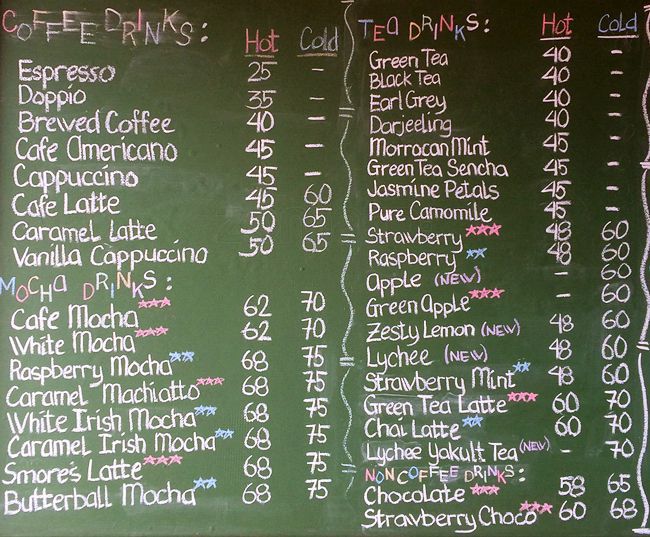 COFFEE DRINKS: Hot Cold
Espresso 25 -
Doppio 35 -
Brewed Coffee 40 -
Cafe Americano 45 -
Cappuccino 45 -
Cafe Latte 45 60
Caramel Latte 50 65
Vanilla Cappuccino 50 65
MOCHA DRINKS:
Cafe Mocha*** 62 70
White Mocha*** 62 70
Raspberry Mocha** 68 75
Caramel Machiatto*** 68 75
White Irish Mocha** 68 75
Caramel Irish Mocha** 68 75
Smore's Latte*** 68 75
Butterball Mocha** 68 75
TEA DRINKS: Hot Cold
Green Tea 40 -
Black Tea 40 -
Earl Grey 40 -
Darjeeling 40 -
Morrocan Mint 45 -
Green Tea Sencha 45 -
Jasmine Petals 45 -
Pure Camomile 45 -
Strawberry*** 48 60
Raspberry** 48 60
Apple (NEW) - 60
Green Apple*** - 60
Zesty Lemon (NEW) 48 60
Lychee (NEW) 48 60
Strawberry Mint** 48 60
Green Tea Latte*** 60 70
Chai Latte** 60 70
Lychee Yakult Tea (NEW) - 70
NON COFFEE DRINKS:
Chocolate*** 58 65
Strawberry Choco*** 60 68